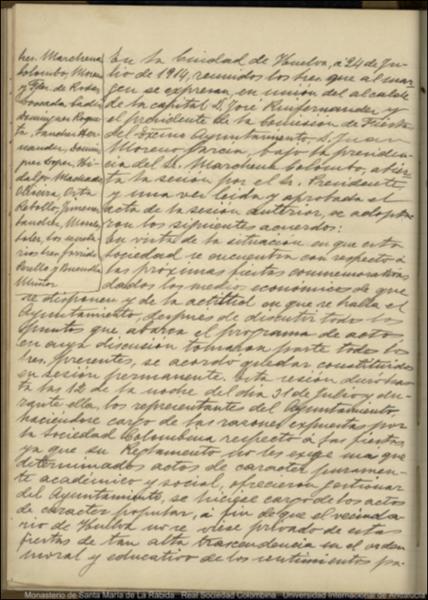 tres. Marchena
Colombo, Moreno
y
Cádiz
Domínguez Roque
ta, Sánchez Her
nández, Domín
guez López, Hi
dalgo Machado
Oliveira, Orta
Rebollo, Jimenez
los secreta
rios tres Garrido
Perelló y Buendía
Muñoz.
En la Ciudad de Huelva, a 24 de Ju-
lio de 1914, reunidos los tres que al mar-
gen se expresan, en unión del alcalde
de la capital D. José
el presidente de la Comisión de Fiestas
del Excmo Ayuntamiento, D. Juan
Moreno García, bajo la presiden-
cia del Sr. Marchena Colombo, abier-
ta la sesión por el Sr. Presidente
y una vez leída y aprobada el
acta de la sesión anterior, se adopta-
ron los siguientes acuerdos:
En vista de la situación en que esta
Sociedad se encuentra con respecto a
las próximas fiestas conmemorativas
dados los medios económicos de que
se disponen y de la actitud en que se halla el
Ayuntamiento, después de discutir todos los
puntos que abarca el programa de actos
en cuya discusión tomaron parte todos los
tres. presentes, se acordó quedar constituidos
en sesión permanente. Esta sesión duró has-
ta las 12 de la noche del día 31 de Julio y du-
rante ella, los representantes del Ayuntamiento,
haciéndose cargo de las razones expuestas por
la Sociedad Colombina respecto a las fiestas,
ya que su Reglamento no les exige más que
determinados actos de caracter puramen-
te académico y social, ofrecieron gestionar
del Ayuntamiento, se hiciese cargo de los actos
de caracter popular, a fin de que el vecinda-
rio de Huelva no se viese privado de estas
fiestas de tan alta trascendencia en el orden
moral y educativo de los sentimientos pa-
Monasterio de Santa María de La Rábida · Real Sociedad Colombina · Universidad Internacional de Andalucía